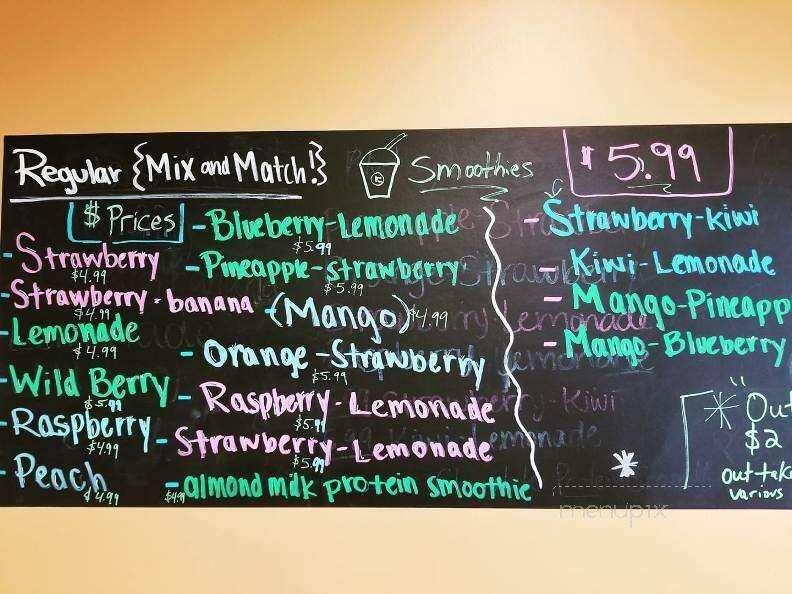 Regular {Mix and Match!} Smoothies
$5.99
$ Prices
- Strawberry
$4.99
- Strawberry-banana
$4.99
- Lemonade
$4.99
- Wild Berry
$5.99
- Raspberry
$4.99
- Peach
$4.99
- Blueberry-Lemonade
$5.99
- Pineapple-strawberry
$5.99
- (Mango) $4.99
- Orange-Strawberry
$5.99
- Raspberry-Lemonade
$5.99
- Strawberry-Lemonade
$5.99
- almond milk protein smoothie
$4.99
- Strawberry-kiwi
- Kiwi-Lemonade
- Mango-Pineapp
- Mango-Blueberry
* Out
$2
out-take
various
menupix